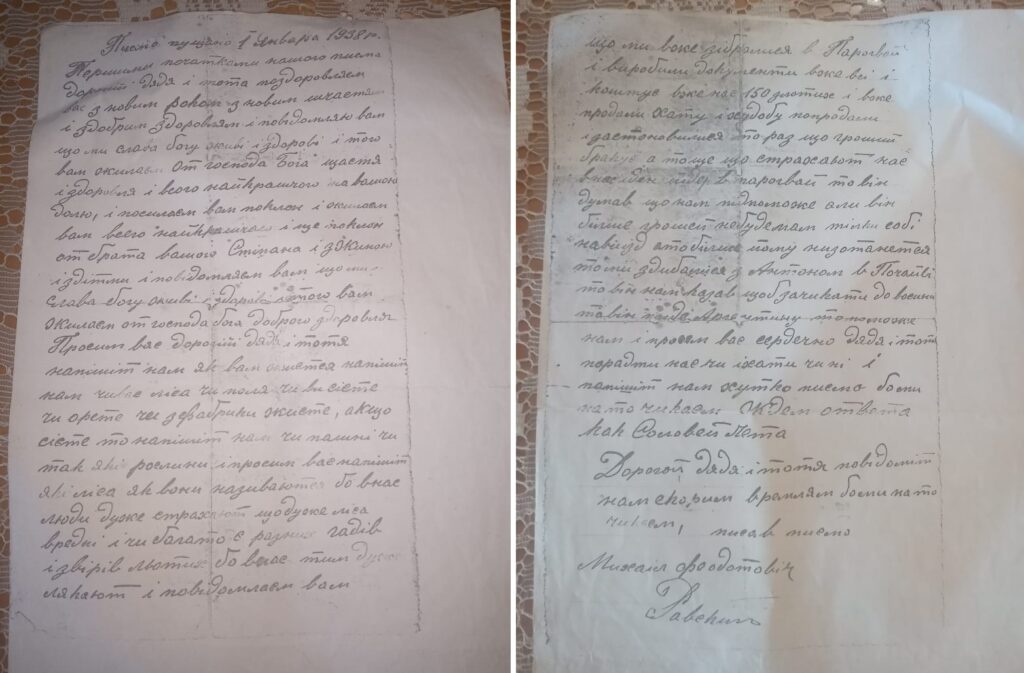 Писмо пущано 1 Января 1938 г.
Першими початками нашого писма
дорогий дядя і тотя поздоровляем
вас з новим роком з новим щастям
і здобрим здоровлям і повідомляю вам
що ми слава богу живі і здорові і того
вам жилаем от господа бога щастя
і здоровля і всего найкрашчого на вашою
долю, і посилаем вам поклон і жилаем
вам всего найкрашчого і ще поклон
от брата вашого Стіпана і зжиною
і здітми і повідомляем вам що ми
слава богу живі і здорові а того вам
жилаем от господа бога доброго здоровля
Просим вас дорогий дядя і тотя
напишіт нам як вам живется напишіт
нам чи вас ліса чи поля чи ви сієте
чи орете чи зфабрики жисте, а кщо
сієте то напишіт нам чи пашні чи
так які рослини і просим вас напишіт
які ліса як вони називаются бо внас
люди дуже страхают що дуже ліса
вредні і чи багато є разних гадів
і звірів лютих бо внас тим дуже
лякают і повідомляем вам
що ми вже зібралися в Парогвей
і виробили документи вже всі і
коштує вже нас 150 злотих і вже
продали хату і худобу попродали
і застановилися то раз що грошив
бракує а то ще що страхают нас
внас ідин їде в парогвай то він
думав що нам підпоможе али він
більше грошей небуде мам тілько собі
на виїзд а то більш йому низотанется
то ми здибалися з Антоном в Почаїві
то він нам казав щоб зачикати до восини
та він поїде Аргентину то поможе
нам і просем вас сердечно дядя і тотя
порадти нас чи їхати чи ні і
напишіт нам хутко писмо бо ми
на то чикаем Ждем ответа
как Соловей Лета
Дорогой дядя і тотя повідоміт
нам скорим времлям бо ми на то
чикаем, писав писмо
Михаил Феодотович